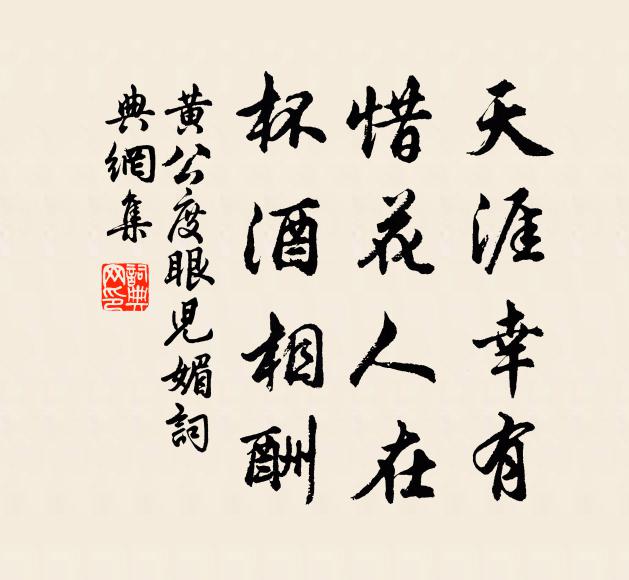 天涯幸有
惜花人在
杯酒相酬
黄公度眼児媚詞
典網集
詞典
网印